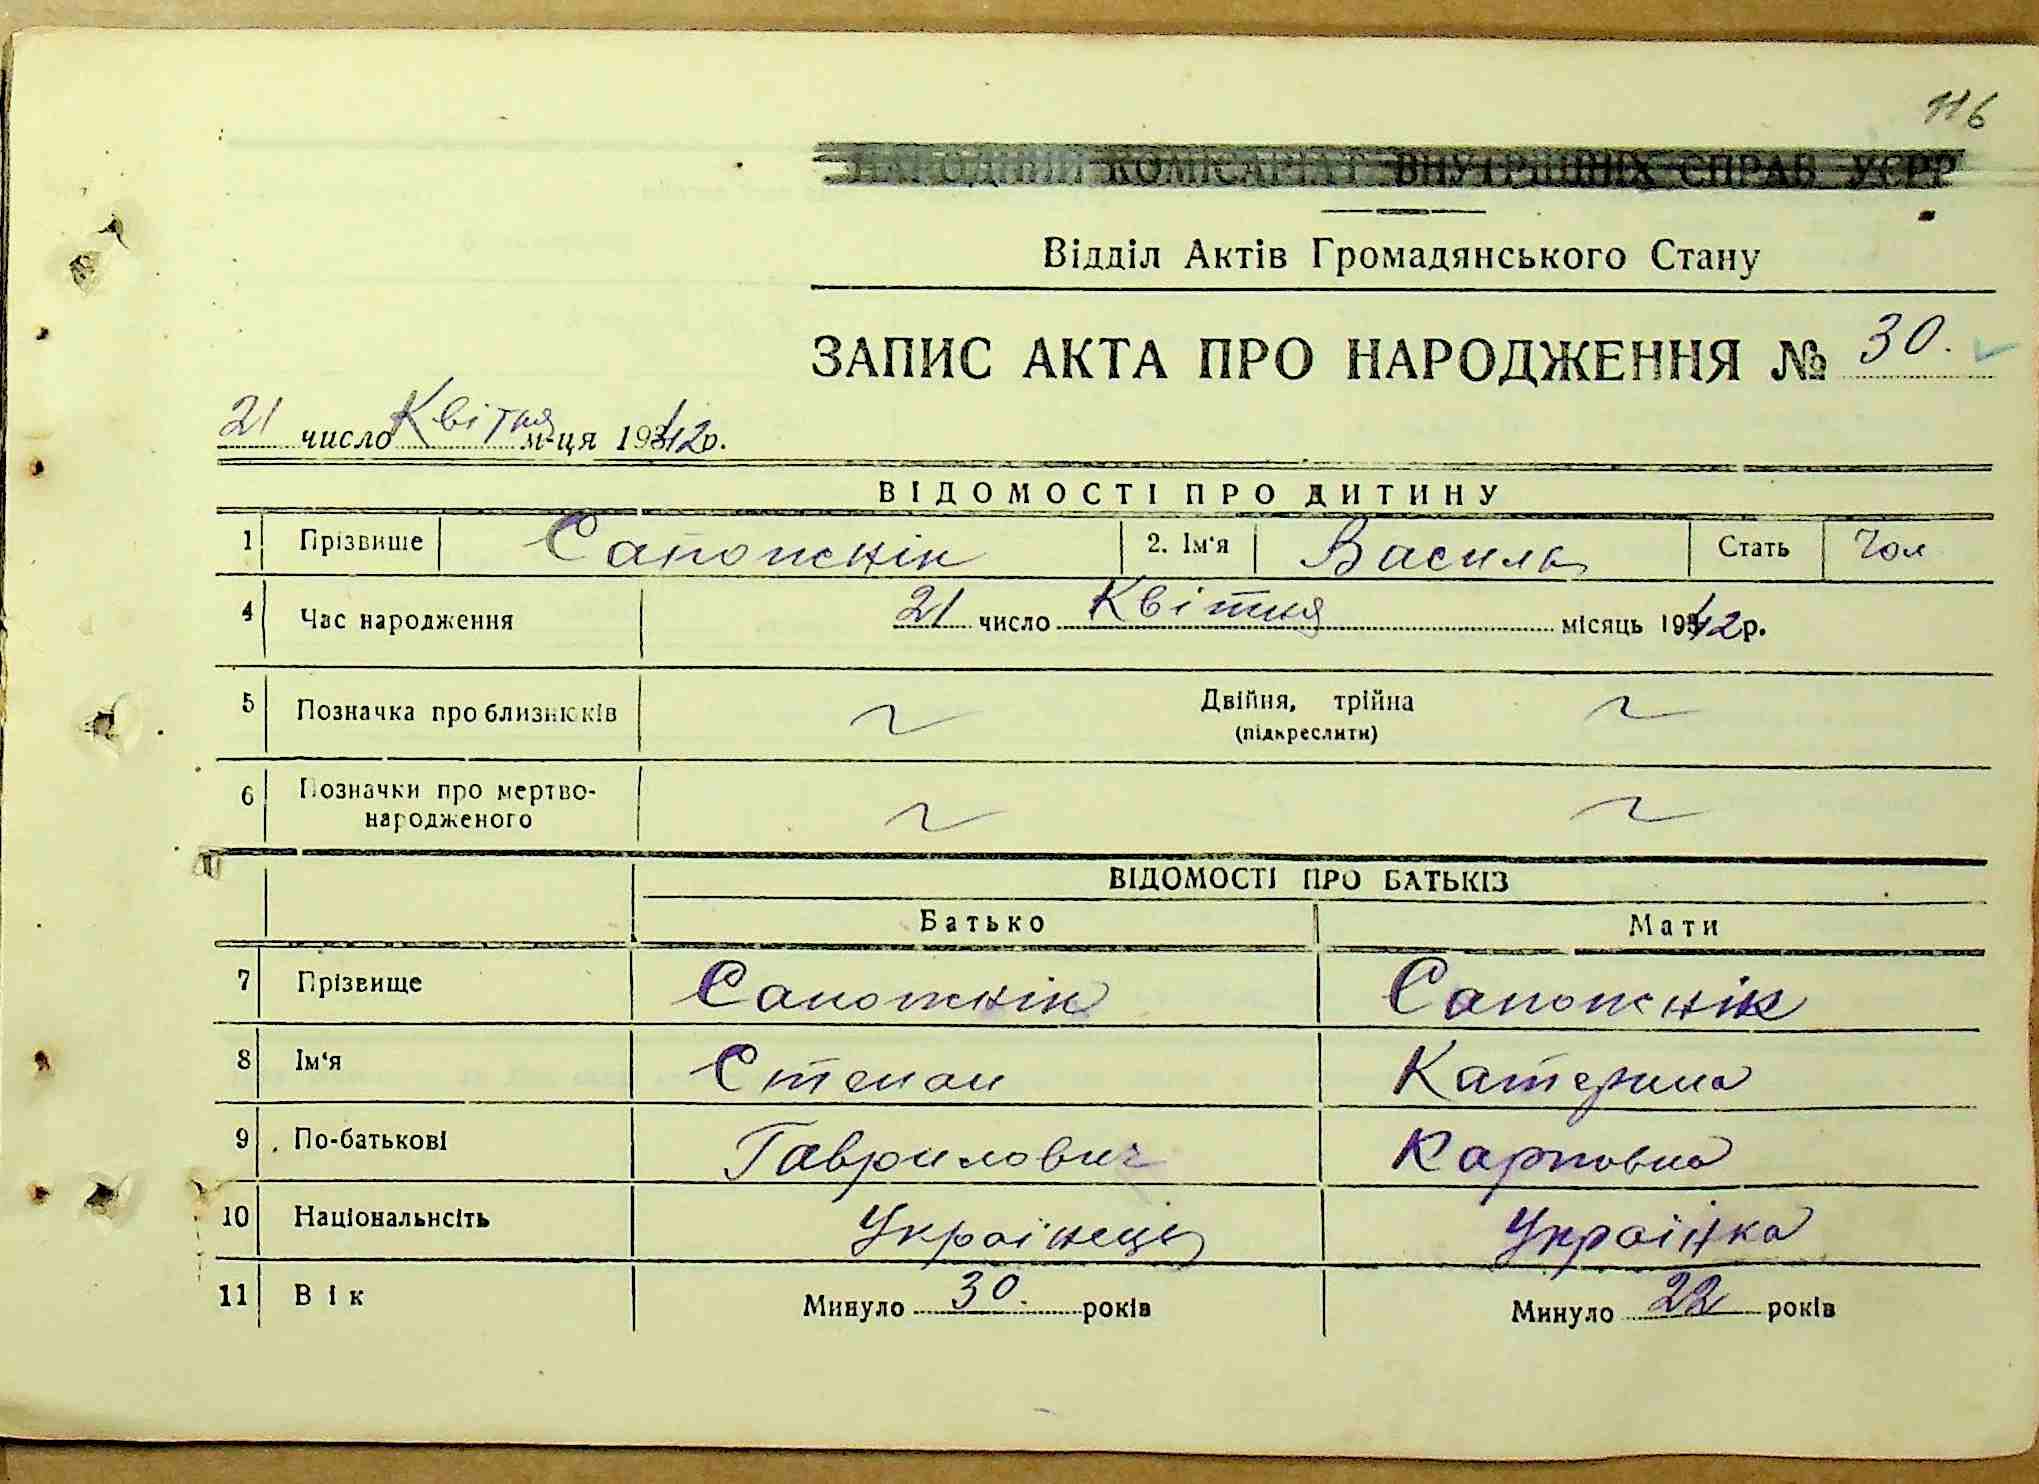 116
НАРОДНИЙ КОМІСАРІАТ ВНУТРІШНІХ СПРАВ УСРР
Відділ Актів Громадянського Стану
ЗАПИС АКТА ПРО НАРОДЖЕННЯ № 30.
21 число Квітня м-ця 1942р.
ВІДОМОСТІ ПРО ДИТИНУ
1 Прізвище Сапожнік 2. Ім'я Василь Стать Чол
4 Час народження 21 число Квітня місяць 1942р.
5 Позначка про близнюків Двійня, трійна
(підкреслити)
6 Позначки про мертво-
народженого
ВІДОМОСТІ ПРО БАТЬКІВ
Батько Мати
7 Прізвище Сапожнік Сапожнік
8 Ім'я Степан Катерина
9 По-батькові Гаврилович Карповна
10 Національнсіть Українець Українка
11 Вік Минуло 30. років Минуло 22 років